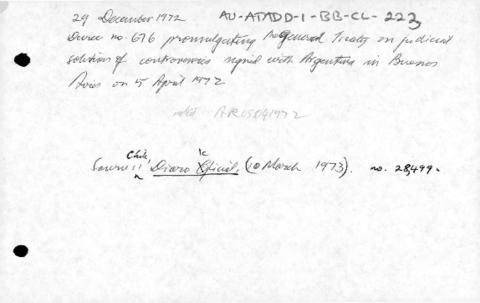 29 December 1972 AU-ATADD-1-BB-CL-223
Decree no 676 promulgating the General Treaty on judicial
solutions of controversies signed with Argentina in Buenos
Aires on 5 April 1972
AR05041972
Source: Chile, Diario Oficial, (10 March 1973). no. 28,499.